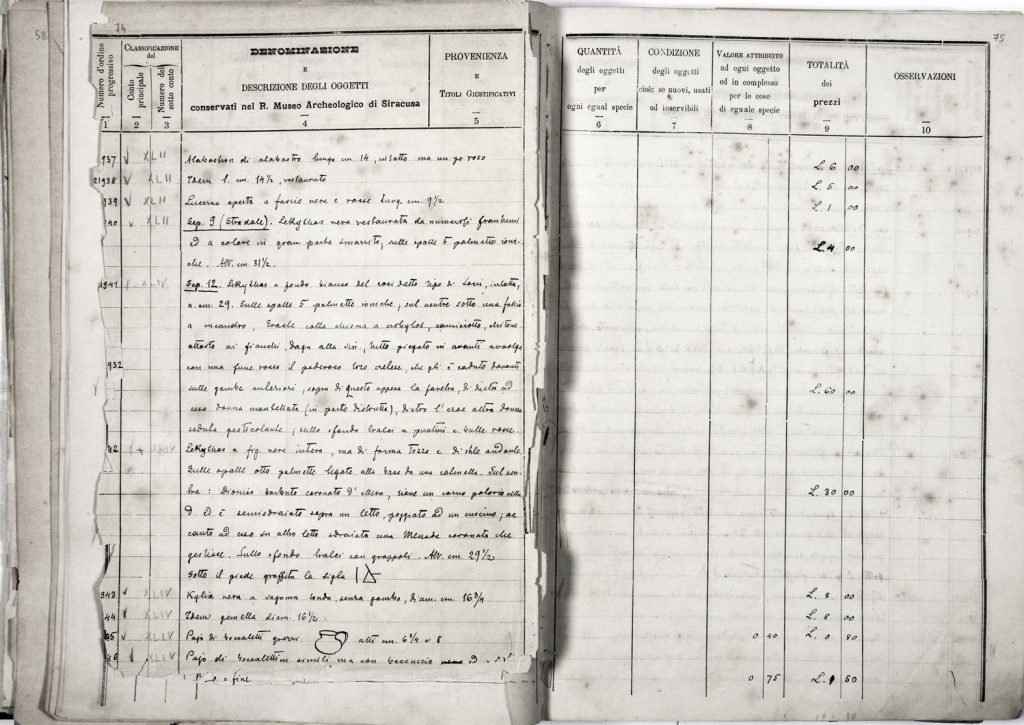 58
74
75
Numero d'ordine progressivo
CLASSIFICAZIONE del
Conto principale
Numero del sotto conto
DENOMINAZIONE
E
DESCRIZIONE DEGLI OGGETTI
conservati nel R. Museo Archeologico di Siracusa
PROVENIENZA
E
TITOLI GIUSTIFICATIVI
QUANTITÀ
degli oggetti
per
ogni egual specie
CONDIZIONE
degli oggetti
cioè: se nuovi, usati
od inservibili
VALORE ATTRIBUITO
ad ogni oggetto
ed in complesso
per le cose
di eguale specie
TOTALITÀ
dei
prezzi
OSSERVAZIONI
1 2 3 4 5 6 7 8 9 10
937 V XLII Alabastron di alabastro lungo cm. 14, intatto ma un po roso L. 6 00
21938 V XLII Idem l. cm. 14½, restaurato L. 5 00
939 V XLII Lucerna aperta a fascie nere e rosse lung. cm. 9½ L. 1 00
940 V XLII Sep. 9 (Stradale). Lekythos nera restaurata da numerosi frantumi
ed a colore in gran parte smarrito, sulle spalle 5 palmette ioni- L. 4 00
che. Alt. cm. 31½.
1941 XLIV Sep. 12. Lekythos a fondo bianco del così detto tipo di Locri, intatta,
a. cm. 29. Sulle spalle 5 palmette ioniche; sul ventre sotto una fascia
a meandro, Eracle colla chioma a crobylos, camiciotto, chitone
attorto ai fianchi, daga alla sin., tutto piegato in avanti avvolge
932
con una fune rossa il poderoso toro cretese, che gli è caduto davanti
sulle gambe anteriori; sopra di questo appesa la faretra, di dietro ad L. 60 00
esso donna mantellata (in parte distrutta), dietro l'eroe altra donna
seduta gesticolante; sullo sfondo tralci a puntini e bulle rosse.
42 XLIV Lekythos a fig. nere intera, ma di forma tozza e di stile andante.
Sulle spalle otto palmette legate alla base da una catenella. Sul ven-
tre: Dioniso barbuto coronato d'edera, tiene un corno potorio nella
d. ed è semisdraiato sopra un letto, poggiato ad un cuscino; ac- L. 30 00
canto ad esso su altro letto sdraiata una Menade coronata che
gestisce. Sullo sfondo tralci con grappoli. Alt. cm. 29½
Sotto il piede graffita la sigla
943 V XLIV Kylix nera a sagoma tonda, senza gambo, diam. cm. 16¾ L. 8 00
44 V XLIV Idem gemella diam. 16½. L. 8 00
45 V XLIV Pajo di boccaletti grezzi alti cm. 6¾ e 8 0 40 L. 0 80
46 XLIV Pajo di boccalettini simili ma con beccuccio ed
e fine 0 75 L. 1 50